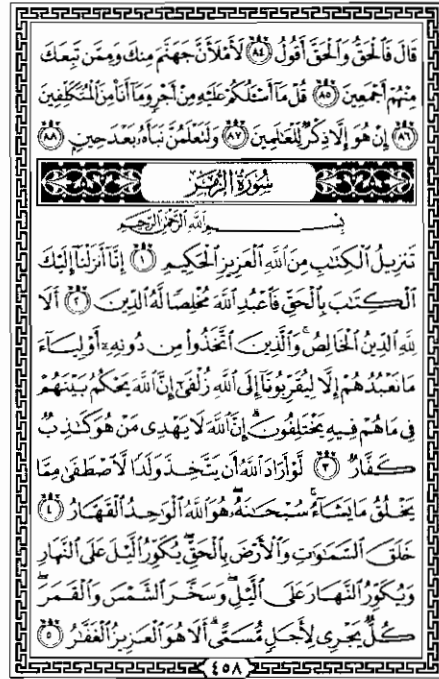 قَالَ فَٱلْحَقُّ وَٱلْحَقَّ أَقُولُ ٨٤ لَأَمْلَأَنَّ جَهَنَّمَ مِنكَ وَمِمَّن تَبِعَكَ
مِنْهُمْ أَجْمَعِينَ ٨٥ قُلْ مَآ أَسْـَٔلُكُمْ عَلَيْهِ مِنْ أَجْرٍ وَمَآ أَنَا۠ مِنَ ٱلْمُتَكَلِّفِينَ
٨٦ إِنْ هُوَ إِلَّا ذِكْرٌ لِّلْعَـٰلَمِينَ ٨٧ وَلَتَعْلَمُنَّ نَبَأَهُۥ بَعْدَ حِينٍۭ ٨٨
سُورَةُ الزُّمَر
بِسْمِ ٱللَّهِ ٱلرَّحْمَـٰنِ ٱلرَّحِيمِ
تَنزِيلُ ٱلْكِتَـٰبِ مِنَ ٱللَّهِ ٱلْعَزِيزِ ٱلْحَكِيمِ ١ إِنَّآ أَنزَلْنَآ إِلَيْكَ
ٱلْكِتَـٰبَ بِٱلْحَقِّ فَٱعْبُدِ ٱللَّهَ مُخْلِصًا لَّهُ ٱلدِّينَ ٢ أَلَا
لِلَّهِ ٱلدِّينُ ٱلْخَالِصُ ۚ وَٱلَّذِينَ ٱتَّخَذُوا۟ مِن دُونِهِۦٓ أَوْلِيَآءَ
مَا نَعْبُدُهُمْ إِلَّا لِيُقَرِّبُونَآ إِلَى ٱللَّهِ زُلْفَىٰٓ إِنَّ ٱللَّهَ يَحْكُمُ بَيْنَهُمْ
فِى مَا هُمْ فِيهِ يَخْتَلِفُونَ ۗ إِنَّ ٱللَّهَ لَا يَهْدِى مَنْ هُوَ كَـٰذِبٌ
كَفَّارٌ ٣ لَّوْ أَرَادَ ٱللَّهُ أَن يَتَّخِذَ وَلَدًا لَّٱصْطَفَىٰ مِمَّا
يَخْلُقُ مَا يَشَآءُ ۚ سُبْحَـٰنَهُۥ ۖ هُوَ ٱللَّهُ ٱلْوَٰحِدُ ٱلْقَهَّارُ ٤
خَلَقَ ٱلسَّمَـٰوَٰتِ وَٱلْأَرْضَ بِٱلْحَقِّ ۖ يُكَوِّرُ ٱلَّيْلَ عَلَى ٱلنَّهَارِ
وَيُكَوِّرُ ٱلنَّهَارَ عَلَى ٱلَّيْلِ ۖ وَسَخَّرَ ٱلشَّمْسَ وَٱلْقَمَرَ ۖ
كُلٌّ يَجْرِى لِأَجَلٍ مُّسَمًّى ۗ أَلَا هُوَ ٱلْعَزِيزُ ٱلْغَفَّـٰرُ ٥
٤٥٨